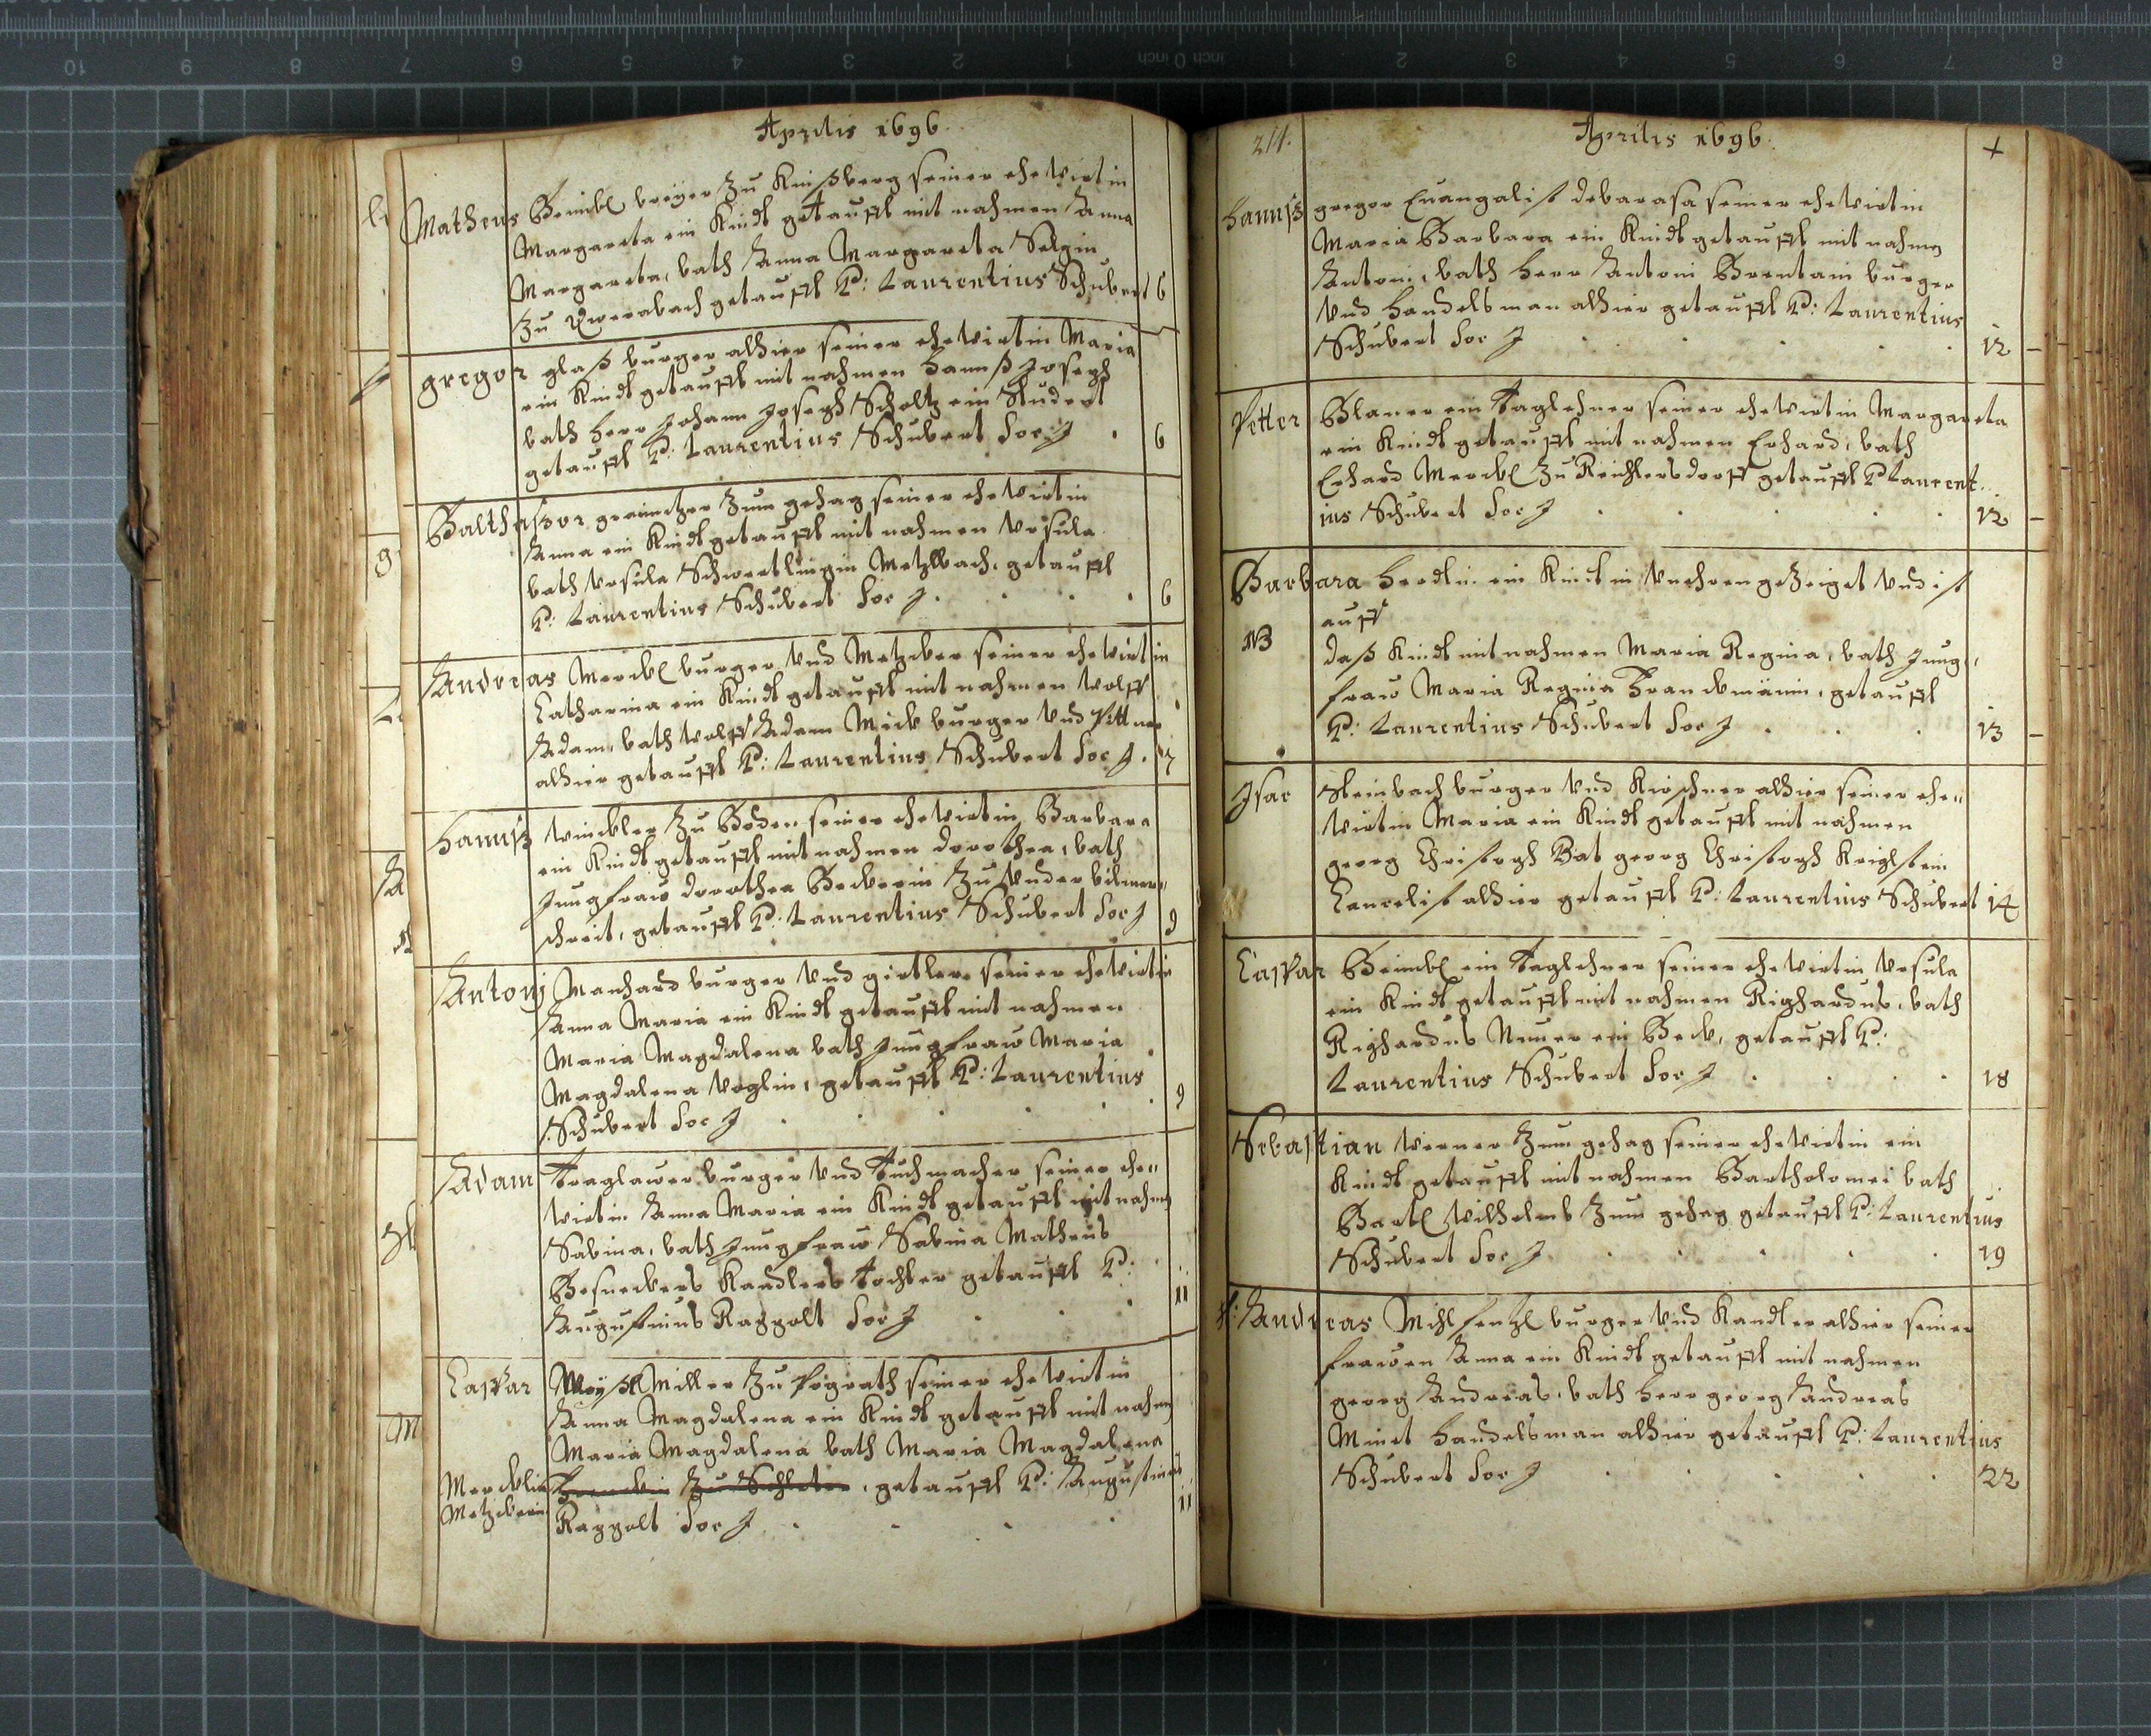 Aprilis 1696.
Matheus Beimbl breyer zu Kinßberg seiner ehewirtin
Margareta ein Kindt getaufft mit nahmen Anna
Margareta, bath Anna Margareta
zu getaufft P: Laurentius Schubert 6
gregor glaß burger alhier seiner ehewirtin Maria
ein Kindt getaufft mit nahmen Hannß Joseph
bath Herr Johann Joseph Scholtz ein Student
getaufft P: Laurentius Schubert Soc: J . 6
Balthasser zum gehag seiner ehewirtin
Anna ein Kindt getaufft mit nahmen Ursula
bath Ursula Metzlbach, getaufft
P: Laurentius Schubert Soc J . . . . 6
Andreas Merckl burger und Metzcker seiner ehewirtin
Catharina ein Kindt getaufft mit nahmen Wolff
Adam, bath Wolff Adam Mick burger und Pittner
alhier getaufft P: Laurentius Schubert Soc J . 7
Hannß Winckler zu Boden seiner ehewirtin Barbara
ein Kindt getaufft mit nahmen dorothea, bath
Jungfraw dorothea Beckerin zu under
, getaufft P: Laurentius Schubert Soc J 9
Antonj Manhard burger und girtlern seiner ehewirtin
Anna Maria ein Kindt getaufft mit nahmen
Maria Magdalena bath Jungfraw Maria
Magdalena Voglin, getaufft P: Laurentius
Schubert Soc J . . . . 9
Adam Traglauer burger und Tuchmacher seiner ehe„
wirtin Anna Maria ein Kindt getaufft mit nahmen
Sabina, bath Jungfraw Sabina Matheus
Kandlers Tochter getaufft P:
Augustinus Raggolt Soc J . . . 11
Caspar Miller zu Pograth seiner ehewirtin
Anna Magdalena ein Kindt getaufft mit nahmen
Maria Magdalena bath Maria Magdalena
Mercklin zu , getaufft P: Augustinus
Metzckerin Raggolt Soc J . . . . 11
214.
Aprilis 1696.
+
Hannß gregor Euangalist debarasa seiner ehewirtin
Maria Barbara ein Kindt getaufft mit nahmen
Antoni, bath Herr Antoni Brentani burger
und Handelsman alhier getaufft P: Laurentius
Schubert Soc J . . . . . 12 –
Petter Blaner ein Taglehner seiner ehewirtin Margareta
ein Kindt getaufft mit nahmen Erhard, bath
Erhard Merckl zu Reichlersdorff getaufft P Laurent..
ius Schubert Soc J . . . . . 12 –
Barbara Herdlin ein Kindt in Unehren gezeiget und ist
auff
NB daß Kindt mit nahmen Maria Regina, bath Jung„
fraw Maria Regina , getaufft
P: Laurentius Schubert Soc J . . . 13 –
Isac Steinbach burger und Kirschner alhier seiner ehe„
wirtin Maria ein Kindt getaufft mit nahmen
georg Christoph Bat georg Christoph ein
Cancelist alhier getaufft P: Laurentius Schubert 14
Caspar Beimbl ein Taglehner seiner ehewirtin Ursula
ein Kindt getaufft mit nahmen Righardus, bath
Righardus ein Beck, getaufft P:
Laurentius Schubert Soc J . . . . 18
Sebastian Werner zum gehag seiner ehewirtin ein
Kindt getaufft mit nahmen Bartholomei bath
Bartl Wilhelmb zum gehag getaufft P: Laurentius
Schubert Soc J . . . . . 19
H: Andreas burger und Kandler alhier seiner
frawen Anna ein Kindt getaufft mit nahmen
georg Andreas, bath Herr georg Andreas
Minet Handelsman alhier getaufft P: Laurentius
Schubert Soc J . . . . . 22